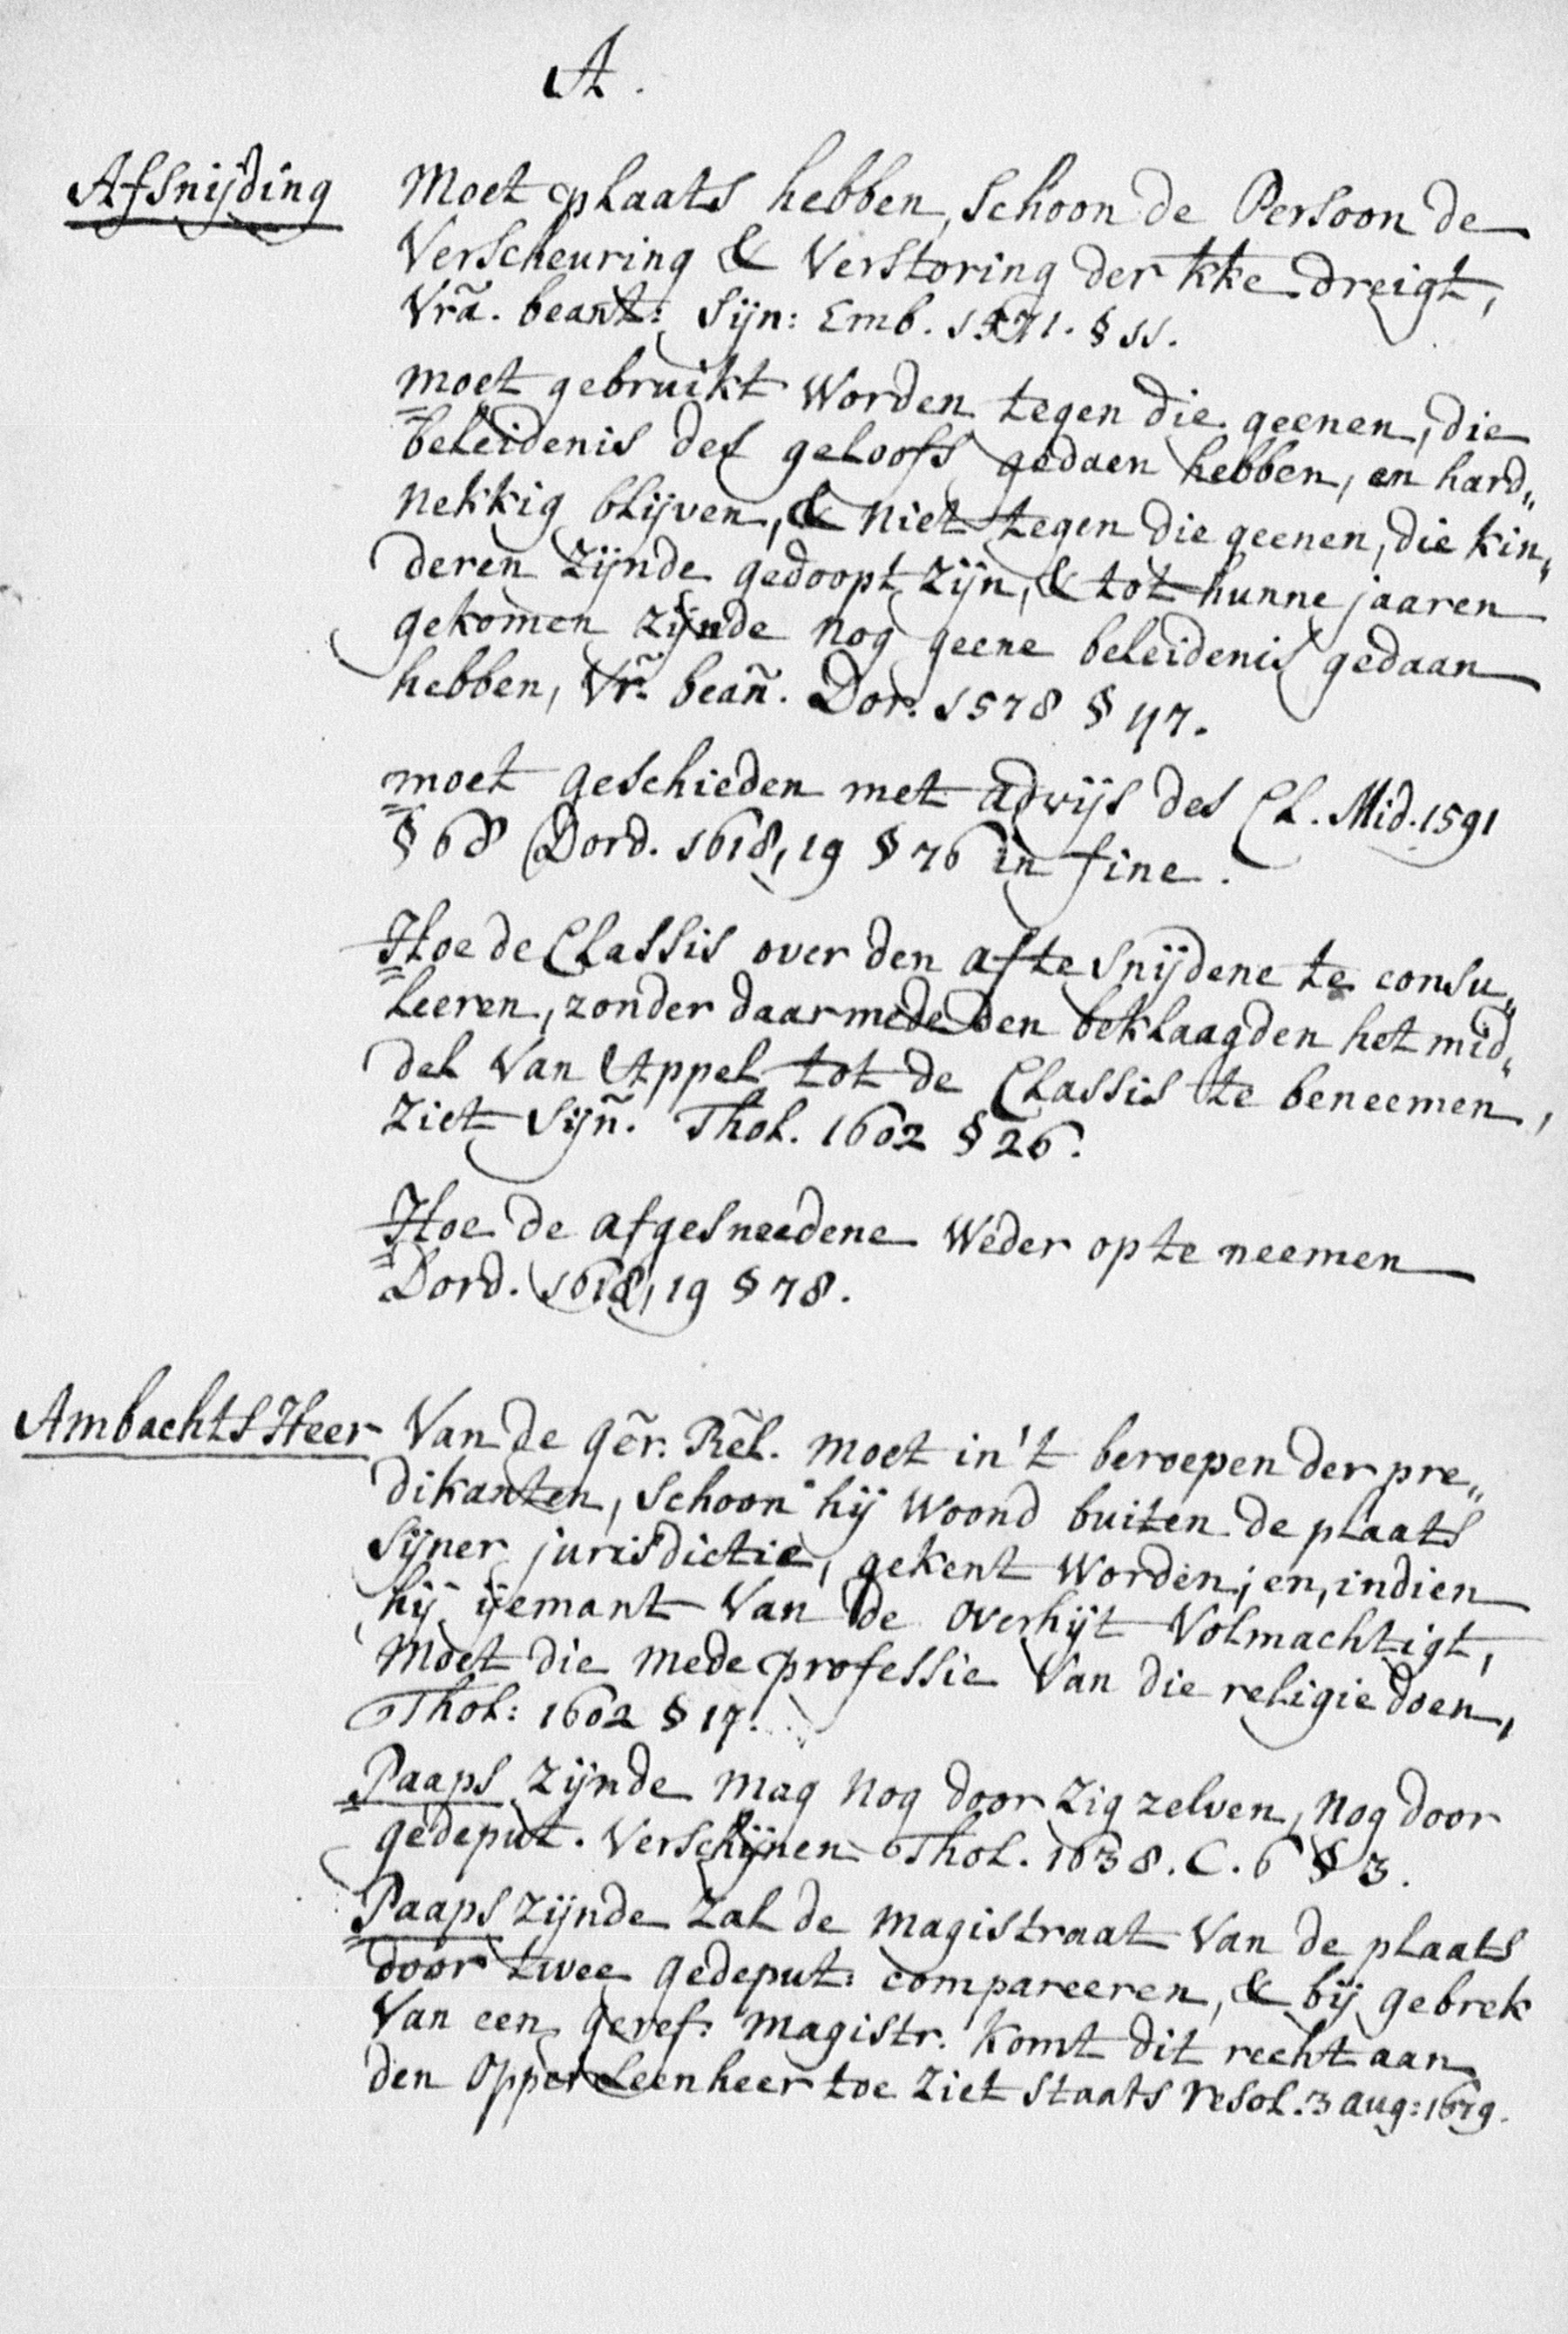 A.
Afsnijding Moet plaats hebben, schoon de Persoon de
Verscheuring & Verstoring der kke dreigt,
Vrã. beant: Sijn: Emb. 1571. § 11.
moet gebruikt Worden tegen die geenen, die
beleidenis des geloofs gedaen hebben, en hard„
nekkig blijven, & niet tegen die geenen, die kin„
deren zijnde gedoopt zijn, & tot hunne jaaren
gekomen zijnde nog geene beleidenis gedaan
hebben, Vr̃. beañ. Dor. 1578 § 47.
moet geschieden met advijs des Cl. Mid. 1591
§ 68 Dord. 1618, 19 § 76 in fine.
Hoe de Classis over den afte snijdene te consu„
leeren, zonder daarmede den beklaagden het mid„
del van Appel tot de Classis te beneemen,
Ziet Sijñ. Thol. 1602 § 26.
Hoe de afgesneedene Weder op te neemen
Dord. 1618, 19 § 78.
Ambachts Heer Van de gẽr. Rẽl. moet in't beroepen der pre„
dikanten, schoon hij Woond buiten de plaats
sijner jurisdictie, gekent Worden; en, indien
hij ijemant Van de overhijt Volmachtigt,
Moet die mede professie Van die religie doen,
Thol: 1602 § 17.
Paaps zijnde mag nog door zig zelven, nog door
gedeput. Verschijnen Thol. 1638. C. 6 § 3.
Paaps zijnde zal de magistraat Van de plaats
door twee gedeput: compareeren, & bij gebrek
Van een geref. magistr. komt dit recht aan
den Opper Leenheer toe Ziet Staats resol. 3 aug: 1679.